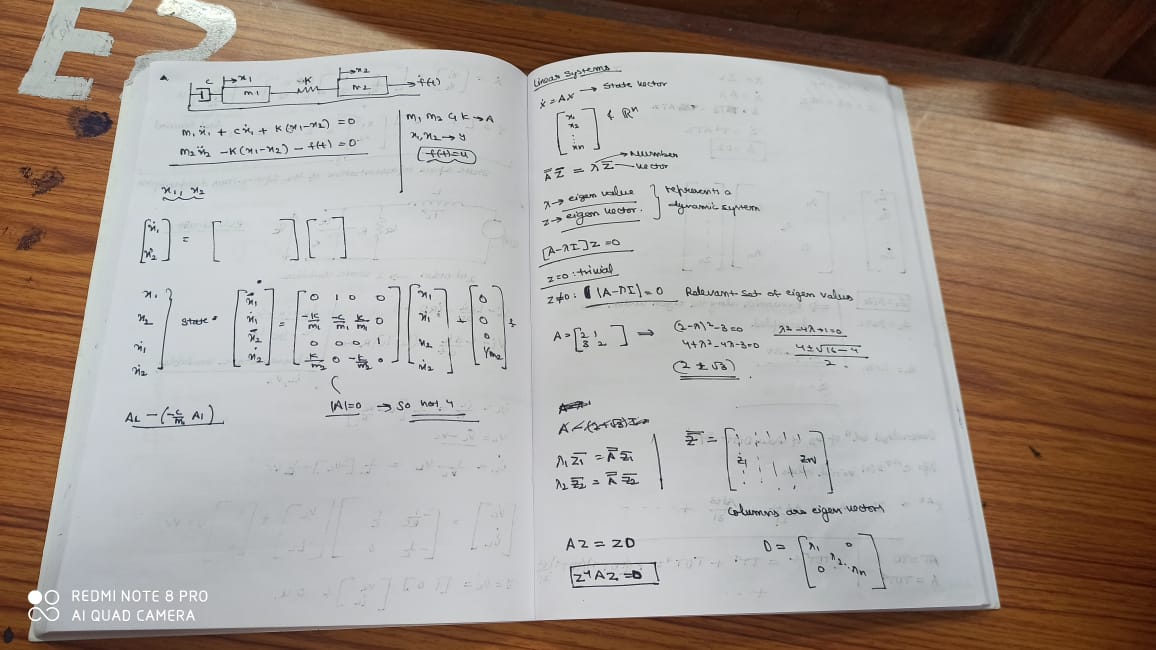 E2
c → x1 K → x2
m1 m2 → f(t)
m1ẍ1 + cẋ1 + K(x1-x2) = 0
m2ẍ2 -K(x1-x2) - f(t) = 0
m1, m2 & K → A
x1, x2 → y
f(t)=u
x1, x2
[ẋ1 ẋ2] = [ ] [ ]
x1
x2
ẋ1
ẋ2
State =
0 1 0 0
-K/m1 -c/m1 K/m1 0
0 0 0 1
K/m2 0 -K/m2 0
x1
ẋ1
x2
ẋ2
+
0
0
0
1/m2
|A|=0 → So not, 4
A2 - (-c/m1 A1)
Linear Systems
ẋ = AX → State Vector
[x1 x2 : xn] ∈ Rⁿ
A̅ Z̅ = λ Z̅ → Number → Vector
λ → eigen value
z → eigen vector.
represents a
dynamic system
[A-λI]Z = 0
z=0 : trivial
z≠0 : |A-λI| = 0 Relevant set of eigen values
A = [2 1 3 2] ⇒ (2-λ)²-3=0
4+λ²-4λ-3=0
(2 ± √3)
λ²-4λ+1=0
4±√16-4
2
λ1 Z̅1 = A̅ Z̅1
λ2 Z̅2 = A̅ Z̅2
Z̅ = [Z1 ZN]
Columns are eigen vectors
AZ = ZD
Z⁻¹AZ = D
D = [λ1 0 λ2 .. 0 λn]
REDMI NOTE 8 PRO
AI QUAD CAMERA